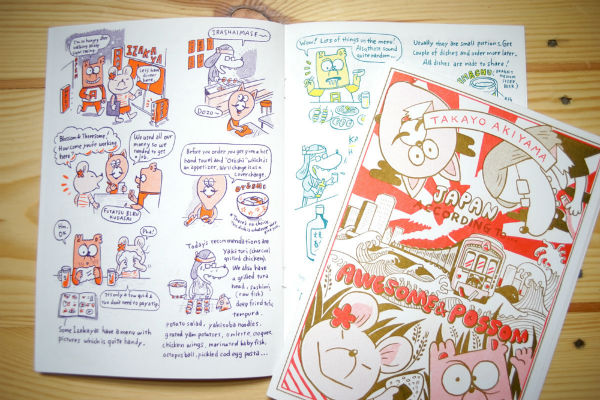 I'm so hungry after
walking today
sight seeing.
IZAKA
YA
Lets have
dinner
here.
Blossom & Thorntom!
How come you're working
here
We used all our
money so we
needed to get
a job.
FUTATSU BIRU
KUDASAI
Hm.
OK
It's only a few quid &
you don't need to pay a tip.
Some Izakayas have a menu with
pictures which is quite handy.
IRASHAIMASE~
DOZO~
Before you order you get given a hot
hand towel and "Otoshi" which is
an appetizer. We charge it as a
cover charge.
OTOSHI
There's no choice.
Today's recommendations are
yakitori (charcoal
grilled chicken).
We also have
a grilled tuna
head, sashimi
(raw fish)
deep fried tofu,
tempura,
potato salad, yakisoba noodles,
grated yam potatoes, omlette, croquet,
chicken wings, marinated baby fish,
octopus ball, pickled cod egg pasta...
Wow! Lots of things in the menu!
Also they sound
quite random...
Usually they are small portions. Get
couple of dishes and order more later.
All dishes are made to share!
TAKAYO AKIYAMA
JAPAN
ACCORDING TO...
AWESOME & POSSOM